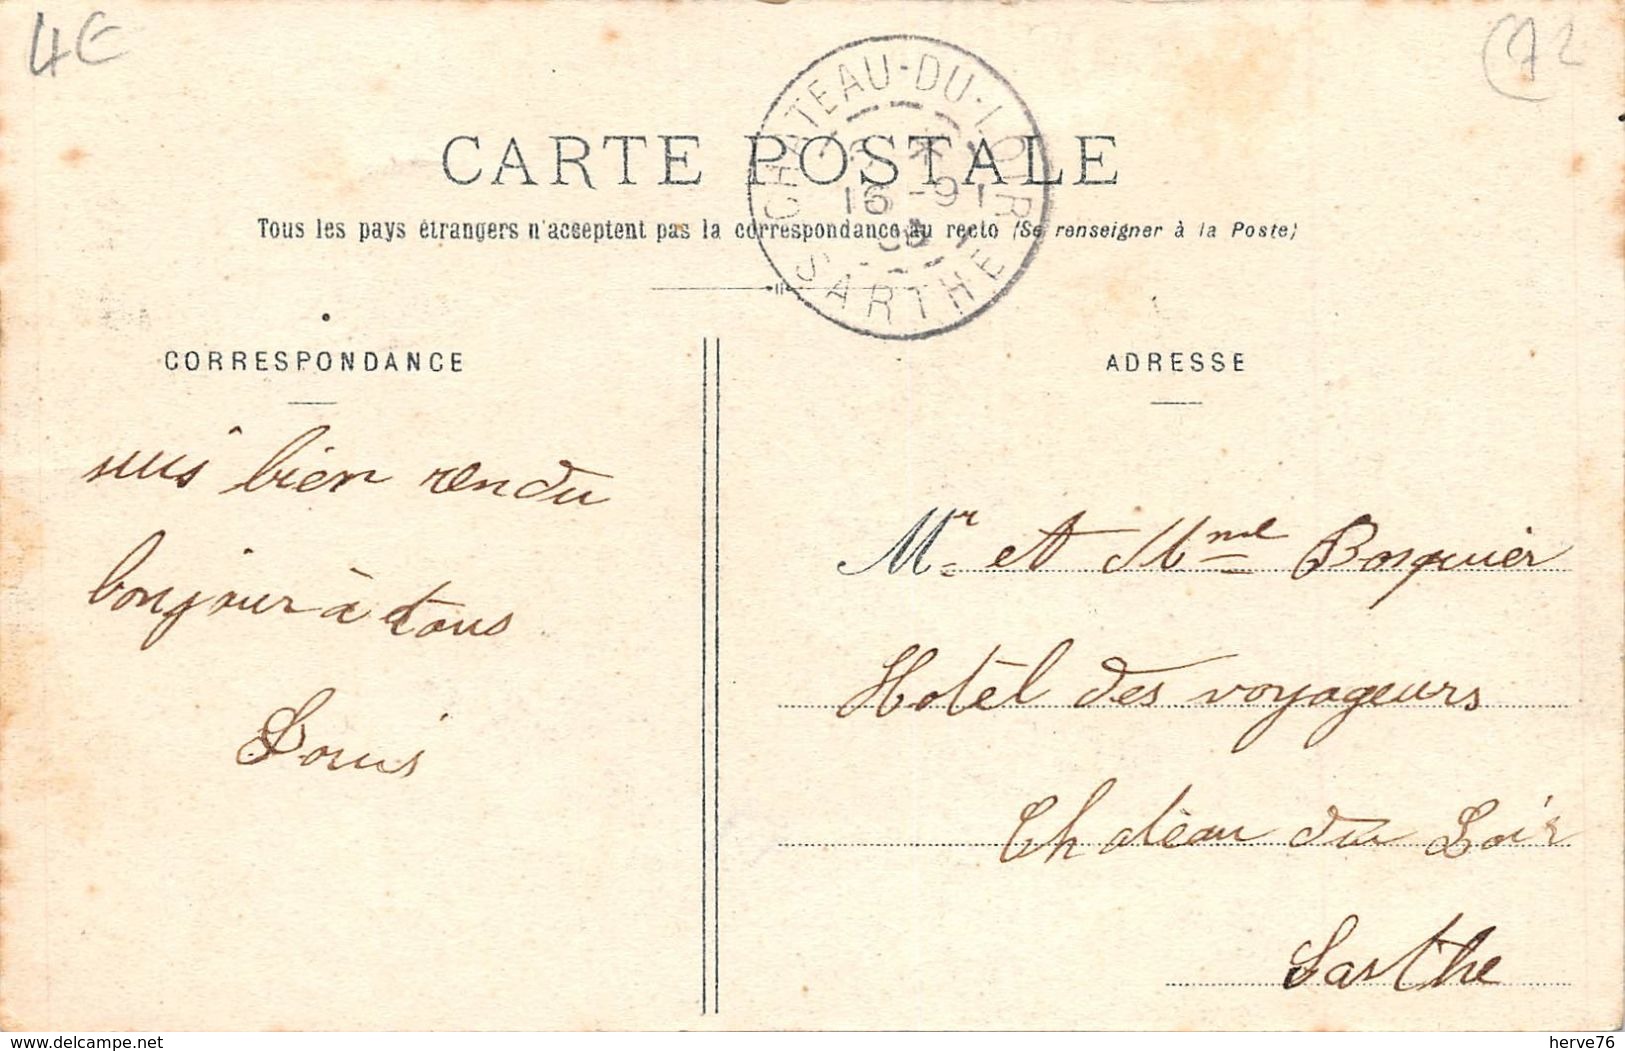 4€
72
CHATEAU-DU-LOIR
16 -9
SARTHE
CARTE POSTALE
Tous les pays étrangers n'acceptent pas la correspondance au recto (Se renseigner à la Poste)
CORRESPONDANCE
suis bien rendu
bonjour à tous
Louis
ADRESSE
Mr et Mme Bosquier
Hotel des voyageurs
Chateau du Loir
Sarthe
www.delcampe.net
herve76